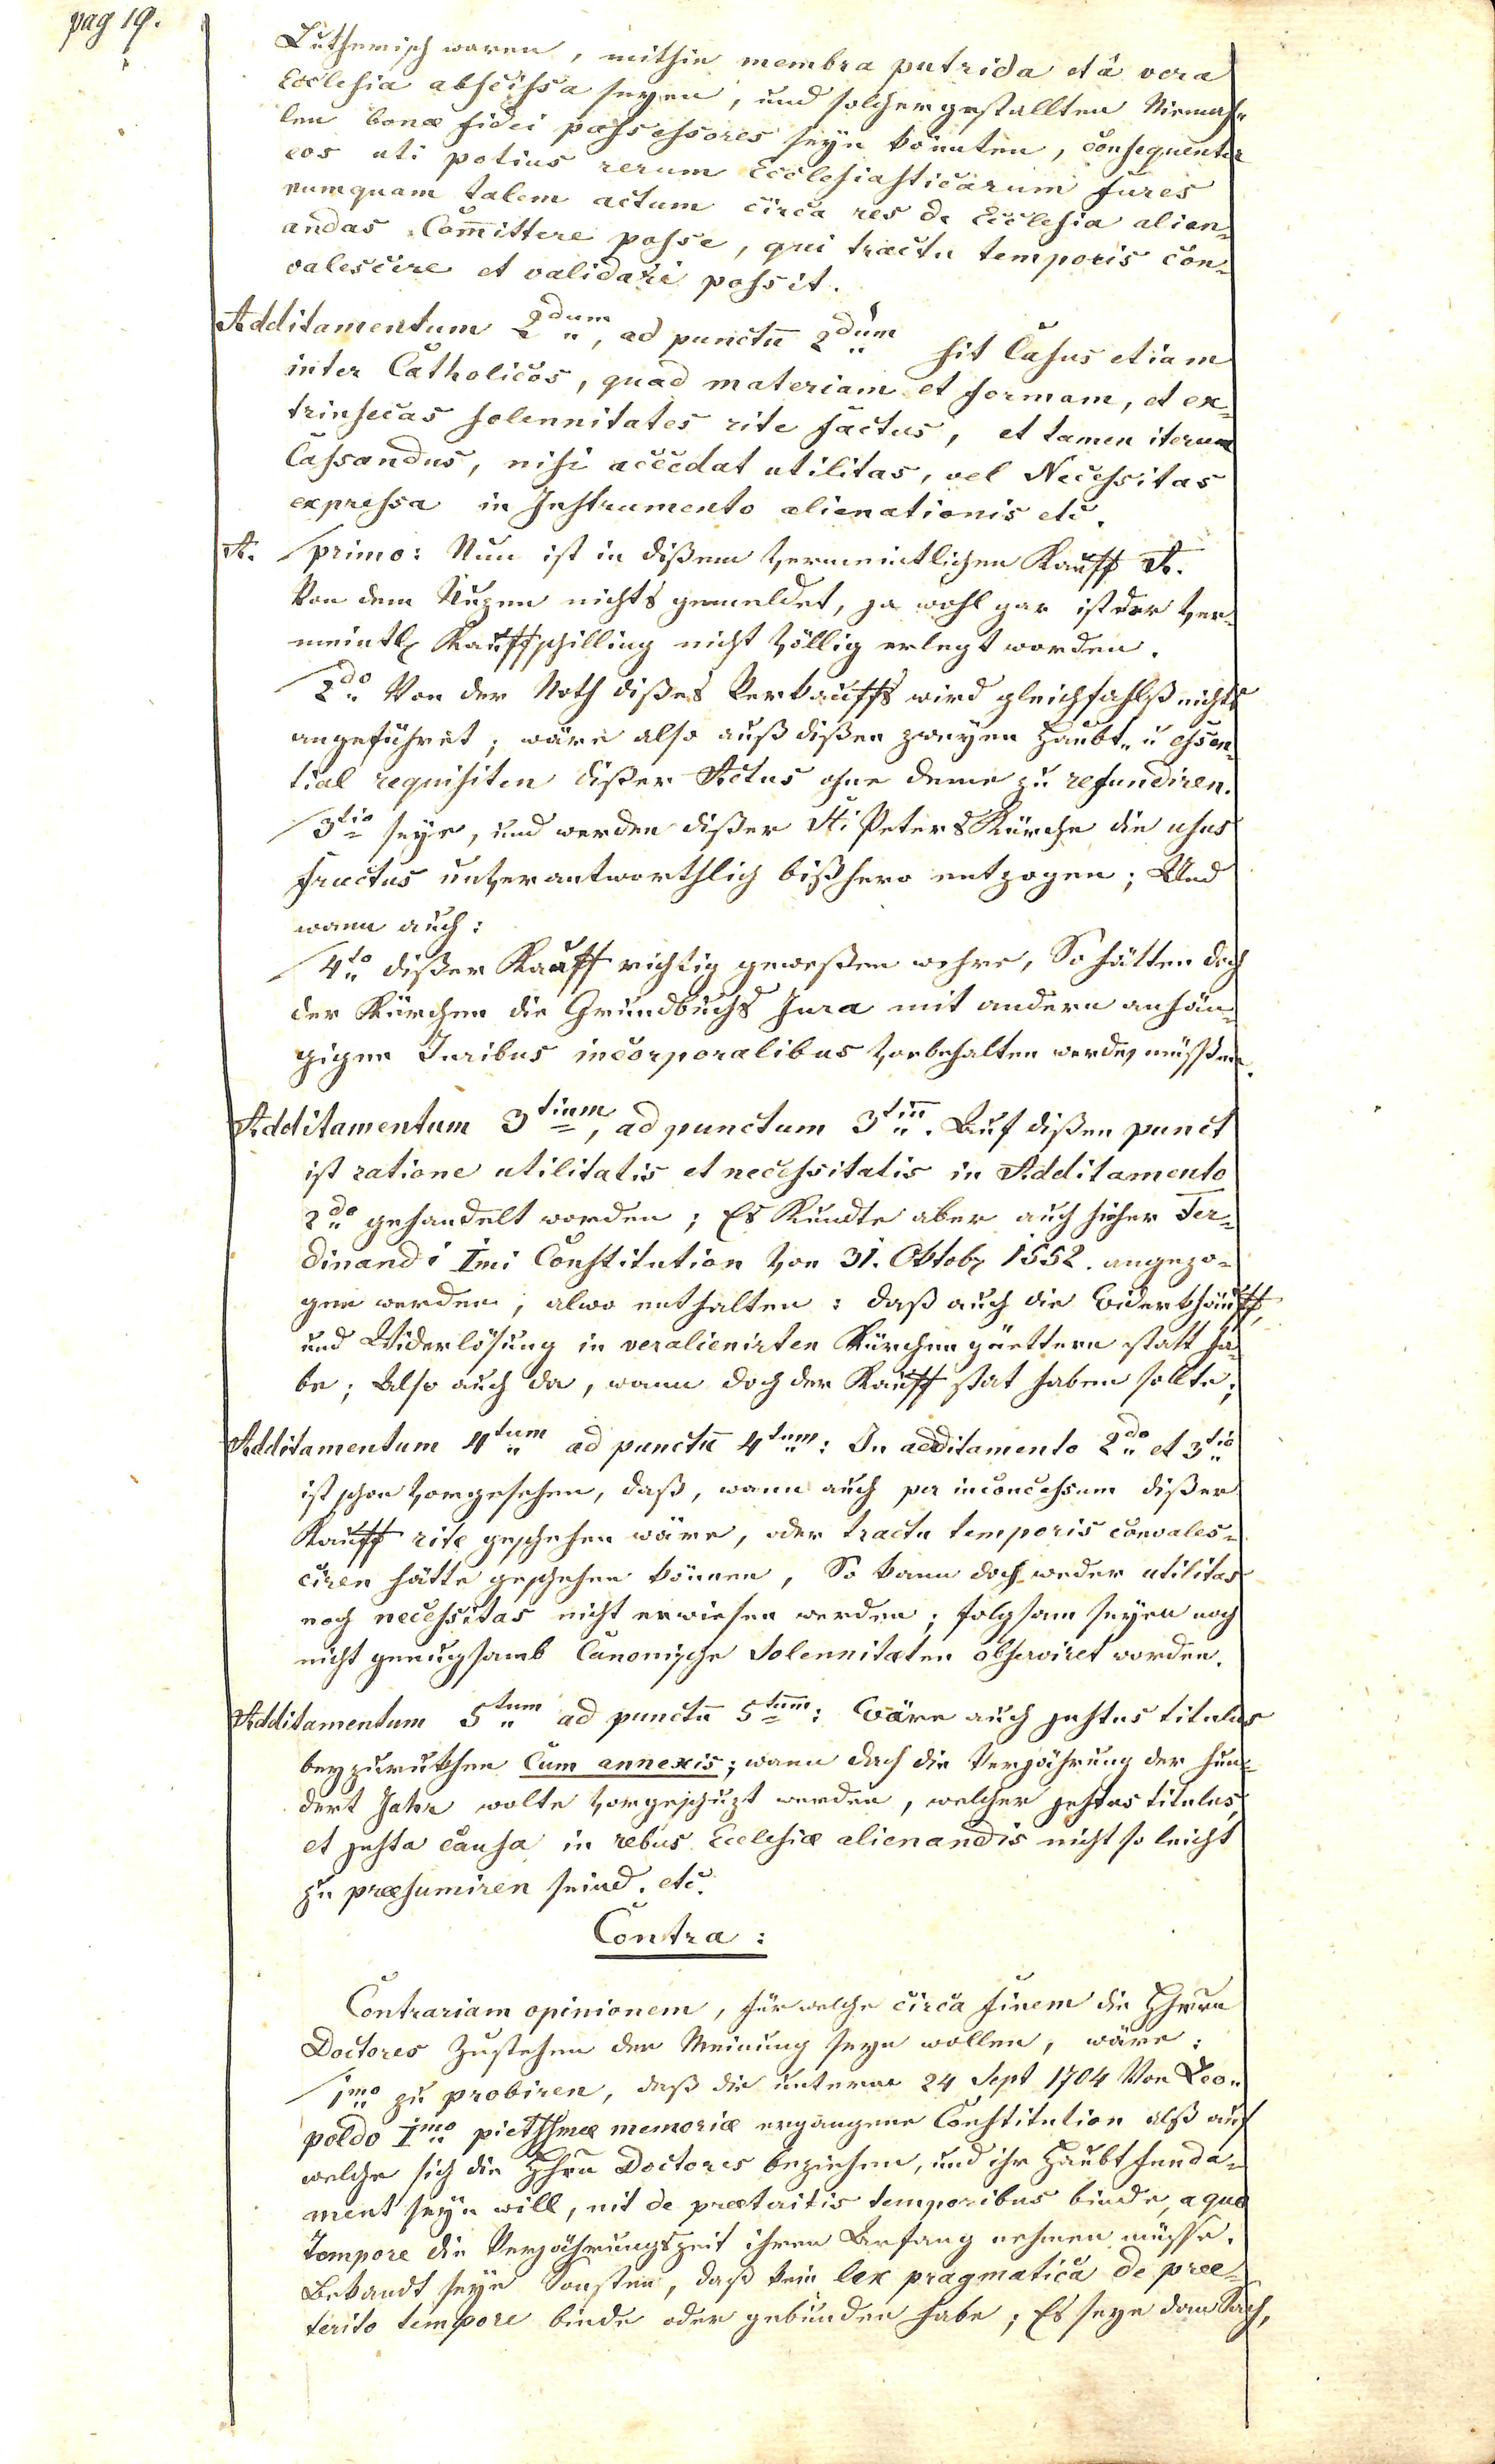 pag 19.
Lutherisch waren, mithin membra putrida et â vera
Ecclesia abscissa seyen, und solchergestallten Niemah-
len bonæ fidei possessores seyn könnten, consequenter
eos uti potius rerum Ecclesiasticarum fures
numquam talem actum circa res de Ecclesia alien-
andas Com̄ittere posse, qui tractu temporis con-
valescere et validari possit.
Additamentum 2dum, ad punctū 2dum sit Casus etiam
inter Catholicos, quad materiam et formam, et ex-
trinsecas solennitates rite factus, et tamen iterum
Cassandus, nisi accedat utilitas, vel Necessitas
expressa in Instrumento alienationis etc.
A. primo: Nun ist in dißem vermeintlichen Kauff A.
Von dem Nuzen nichts gemeldet, ja wohl gar ist der ver-
meintl. Kauffschilling nicht völlig erlegt worden.
2do Von der Noth dißes Verkauffs wird gleichfahlß nichts
angeführet; wäre also auß dißen zweyen Haubt- u essen-
tial requisiten dißer Actus ohne deme zu refundiren.
3tio seye, und werden dißer Sti Peters Kürche die usus
fructus unverantworthlich bißhero entzogen; Und
wann auch:
4to dißer Kauff richtig geweßen wehre, So hätten doch
der Kürchen die Grundbuchs Jura mit andern anhän-
gigen Juribus incorporalibus vorbehalten werden müssen.
Additamentum 3tium, ad punctum 3tiū. Auf dißen punct
ist ratione utilitatis et necessitatis in Additamento
2do gehandelt worden; Es Kundte aber auch hieher Fer-
dinandi Imi Constitution von 31. Oktobr 1552. angezo-
gen werden, alwo enthalten: daß auch die Widerkhäuff,
und Widerlösung in veralienirten Kürchen güettern statt ha-
be; Also auch da, wann doch der Kauff stat haben sollte;
Additamentum 4tum ad punctū 4tum: In additamento 2do et 3tio
ist schon vorgesehen, daß, wann auch per inconcessum dißer
Kauff rite geschehen wäre, oder tractu temporis convales-
ciren hätte geschehen können, So kann doch weder utilitas
noch necessitas nicht erwiesen werden; folgsam seyen noch
nicht genugsamb Canonische Solennitæten observiret worden.
Additamentum 5tum ad punctū 5tum: Wäre auch justus titulus
beyzurukhen Cum annexis; wann doch die Verjährung der hun-
dert Jahr wolte vorgeschuzt werden, welcher justus titulus,
et justa causa in rebus Ecclesiæ alienandis nicht so leicht
zu præsumiren seind. etc.
Contra:
Contrariam opinionem, für welche circa finem die Hherrn
Doctores Zustehen der Meinung seyn wollen, wäre:
1mo zu probiren, daß die unterm 24 Sept 1704 Von Leo-
poldo Imo pietssmæ memoriæ ergangene Constitution alß auf
welche sich die Hhrn Doctores beziehen, und ihr Haubt funda-
ment seyn will, nit de præteritis temporibus binde, a quo
Tempore die Verjährungszeit ihren Anfang nehmen müsse.
Bekandt seye Sonsten, daß kein lex pragmatica de præ-
terito tempore binde oder gebunden habe; Es seye dann Sach,